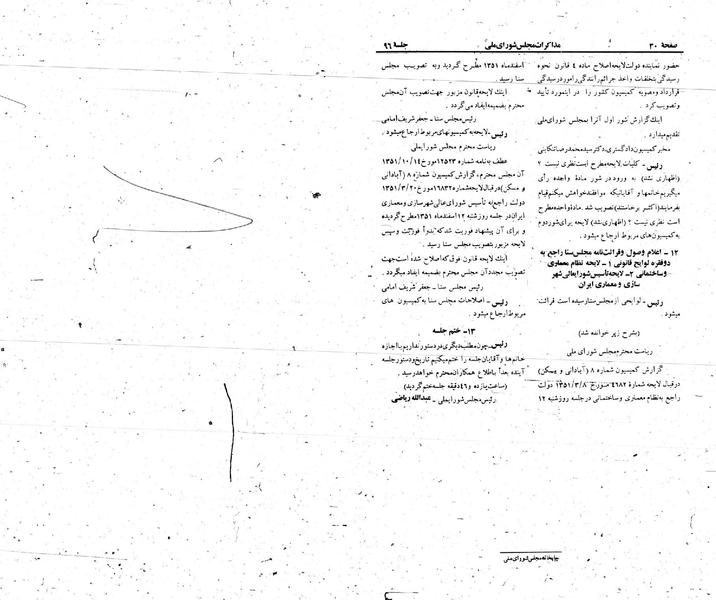 صفحهٔ ۳۰
مذاکرات مجلس شورای ملی
جلسهٔ ۹۶
حضور نماینده دولت لایحه اصلاح ماده ۴ قانون نحوه
رسیدگی بتخلفات واخذ جرائم رانندگی را مورد رسیدگی
قرار داد و مصوبه کمیسیون کشور را در اینمورد تأیید
و تصویب کرد .
اینك گزارش شور اول آنرا بمجلس شورای ملی
تقدیم میدارد .
مخبر کمیسیون دادگستری، دکتر سید محمدرضا تنکابنی
رئیس ـ کلیات لایحه مطرح است نظری نیست ؟
(اظهاری نشد) به ورود در شور مادهٔ واحده رأی
میگیریم خانمها و آقایانیکه موافقند خواهش میکنم قیام
بفرمایند (اکثر برخاستند) تصویب شد . مادهٔ واحده مطرح
است نظری نیست ؟ (اظهاری نشد) لایحه برای شور دوم
به کمیسیون های مربوط ارجاع میشود .
۱۲ ـ اعلام وصول و قرائت نامه مجلس سنا راجع به
دو فقره لوایح قانونی ۱ ـ لایحه نظام معماری
و ساختمانی ۲ ـ لایحه تأسیس شورایعالی شهر
سازی و معماری ایران
رئیس ـ لوایحی از مجلس سنا رسیده است قرائت
میشود .
(بشرح زیر خوانده شد)
ریاست محترم مجلس شورای ملی
گزارش کمیسیون شماره ۸ (آبادانی و مسکن)
در قبال لایحه شمارهٔ ۴۶۸۲ مورخ ۱۳۵۱/۳/۸ دولت
راجع به نظام معماری و ساختمانی در جلسه روز شنبه ۱۲
اسفندماه ۱۳۵۱ مطرح گردید و به تصویب مجلس
سنا رسید .
اینك لایحه قانون مزبور جهت تصویب آن مجلس
محترم بضمیمه ایفاد می گردد .
رئیس مجلس سنا ـ جعفر شریف امامی
رئیس ـ لایحه به کمیسیونهای مربوط ارجاع میشود .
ریاست محترم مجلس شورایملی
عطف به نامه شماره ۱۲۵۲۳ مورخ ۱۳۵۱/۱۰/۱۴
آن مجلس محترم، گزارش کمیسیون شماره ۸ (آبادانی
و مسکن) در قبال لایحه شماره ۱۶۸۳۲ مورخ ۱۳۵۱/۳/۲۰
دولت راجع به تأسیس شورای عالی شهرسازی و معماری
ایران در جلسه روز شنبه ۱۲ اسفندماه ۱۳۵۱ مطرح گردیده
و برای آن پیشنهاد فوریت شد که بدواً فوریت و سپس
لایحه مزبور بتصویب مجلس سنا رسید .
اینك لایحه قانون فوق که اصلاح شده است جهت
تصویب مجدد آن مجلس محترم بضمیمه ایفاد میگردد .
رئیس مجلس سنا ـ جعفر شریف امامی
رئیس ـ اصلاحات مجلس سنا به کمیسیون های
مربوط ارجاع میشود .
۱۳ ـ ختم جلسه
رئیس ـ چون مطلب دیگری در دستور نداریم با اجازه
خانم ها و آقایان جلسه را ختم میکنیم تاریخ و دستور جلسه
آینده بعداً باطلاع همکاران محترم خواهد رسید .
(ساعت یازده و ۴۶ دقیقه جلسه ختم گردید)
رئیس مجلس شورایملی ـ عبدالله ریاضی
چاپخانه مجلس شورای ملی